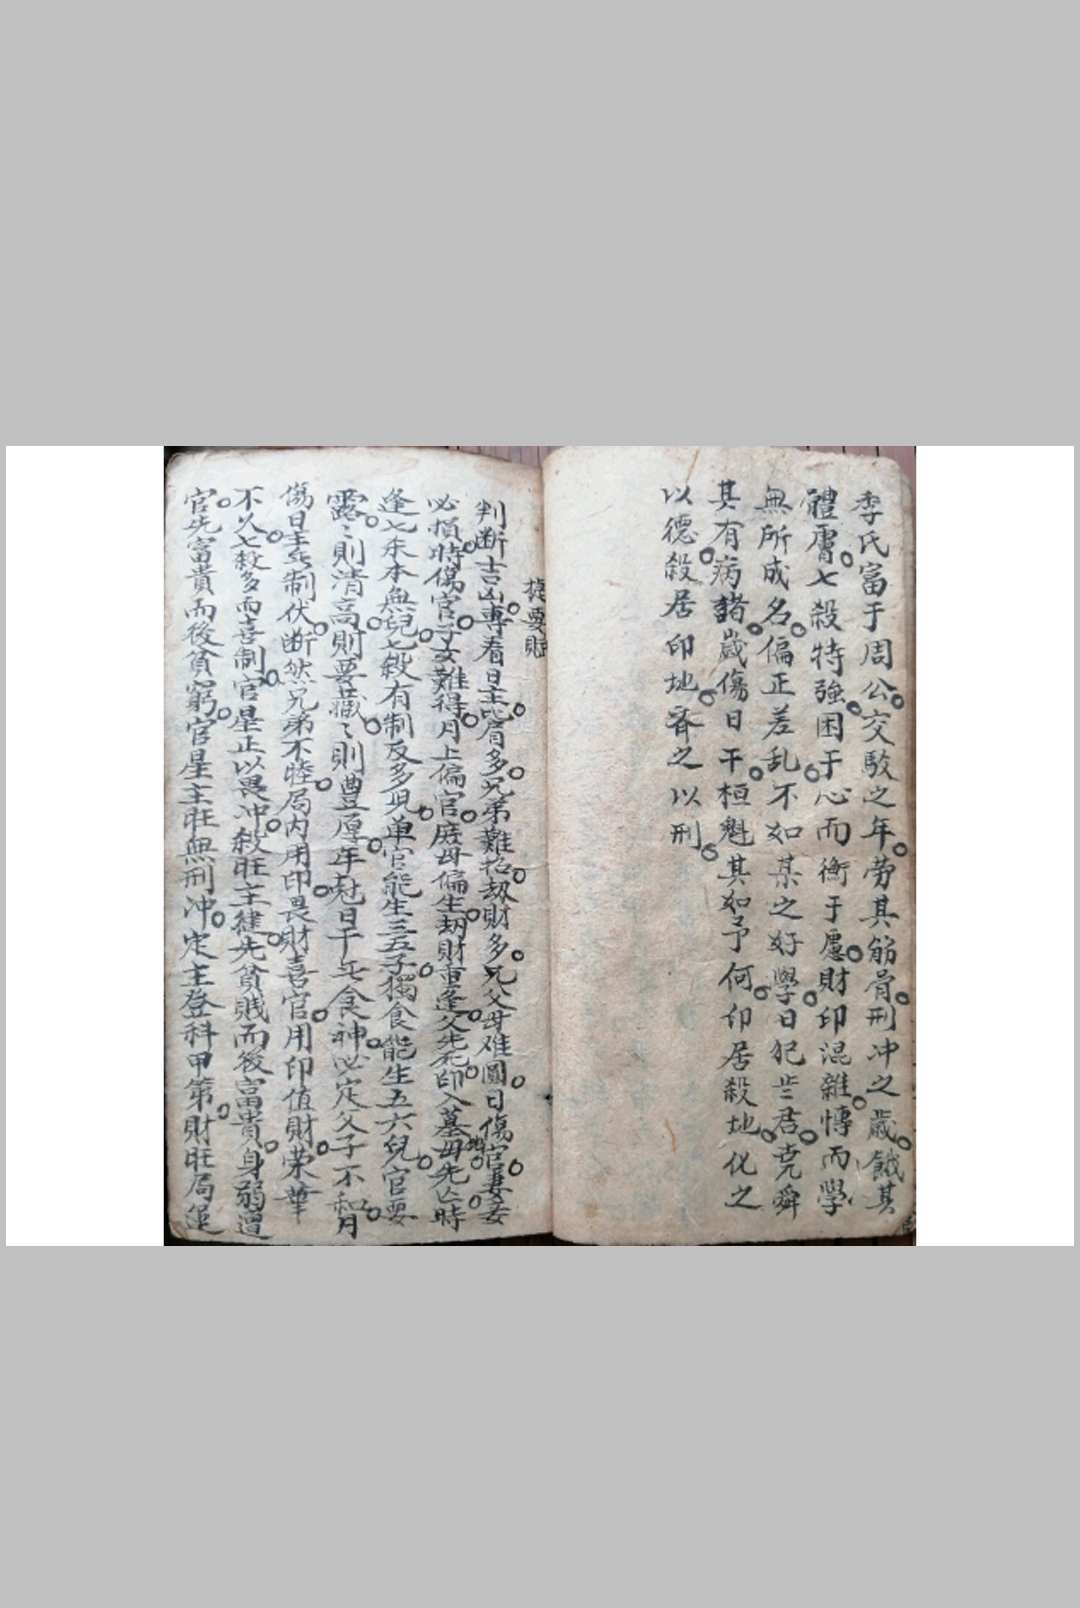 季氏富于周公交馭之年勞其筋骨刑冲之歲餓其
體膚七殺特強困于心而衡于慮財印混雜慱而學
無所成名偏正差乱不如某之好學日犯岁君尭舜
其有病諸歲傷日干桓魁其如予何印居殺地化之
以德殺居印地齊之以刑
捷要賦
判断吉凶專看日主比肩多兄弟難招刼財多兄父母难圓日傷官妻妾
必損時傷官子女難得月上偏官庶母偏生刼財重逢父先死印入墓地母先亡時
逢七杀本無兒七殺有制反多児单官能生三五子獨食能生五六兒官要
露〻則清高財要藏〻則豊厚年尅日干無食神必定父子不和月
傷日主無制伏断然兄弟不睦局内用印畏財喜官用印值財荣華
不久七殺多而喜制官星正以畏冲殺旺主健先貧賎而後富貴身弱遭
官先富貴而後貧窮官星主旺無刑冲定主登科甲第財旺局逢